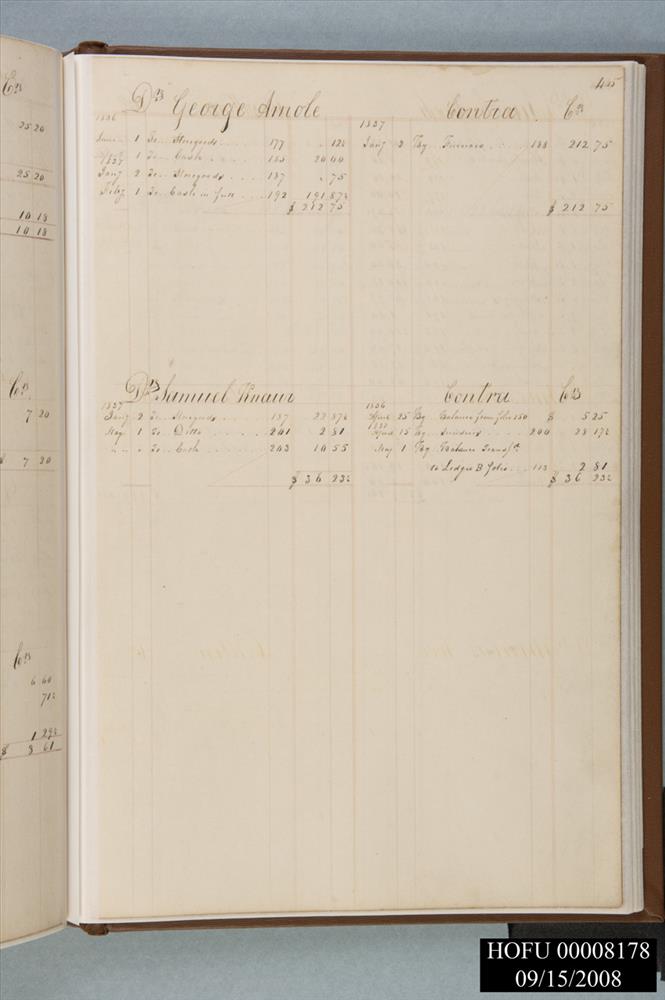 Crs
25 20
25 20
10 18
10 18
Cr.
7 20
$ 7 20
Crs
6 60
71½
1 29½
$ 8 61
455
Drs George Amole Contra Crs
1836 1837
1 To Storegoods 177 12½ Jany 2 By 188 212 75
1837 1 To Cash 185 20 00
Jany 2 To Storegoods 187 75
Feby 1 To Cash in full 192 191 87½
$ 212 75 $ 212 75
Drs Samuel Knauer Contra Crs
1837 1836
Jany 2 To Storegoods 187 22 87½ 25 By Balance from folio 150 $ 5 25
May 1 To Ditto 201 2 81 15 By Sundries 200 28 17½
" " To Cash 203 10 55 May 1 By Balance Transft
to Ledger B folio 113 2 81
$ 36 23½ $ 36 23½
HOFU 00008178
09/15/2008